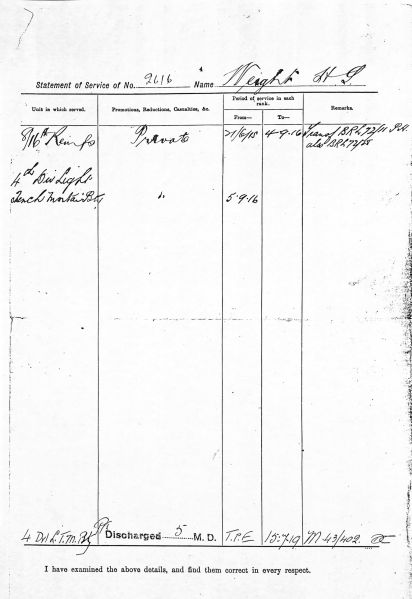 Statement of Service of No. 2616 Name Weight H G
Unit in which served.
Promotions, Reductions, Casualties, &c.
Period of service in each rank.
From—
To—
Remarks.
8/16th Reinfs Private 21/6/15 4-9-16 Transf BRL 72/11
also BRL 72/25
4th Div Light
Trench Mortar Bty " 5-9-16
4 Div L.T.M. Bty Discharged 5 M.D. T.P.E 15.7.19 M 43/402
I have examined the above details, and find them correct in every respect.